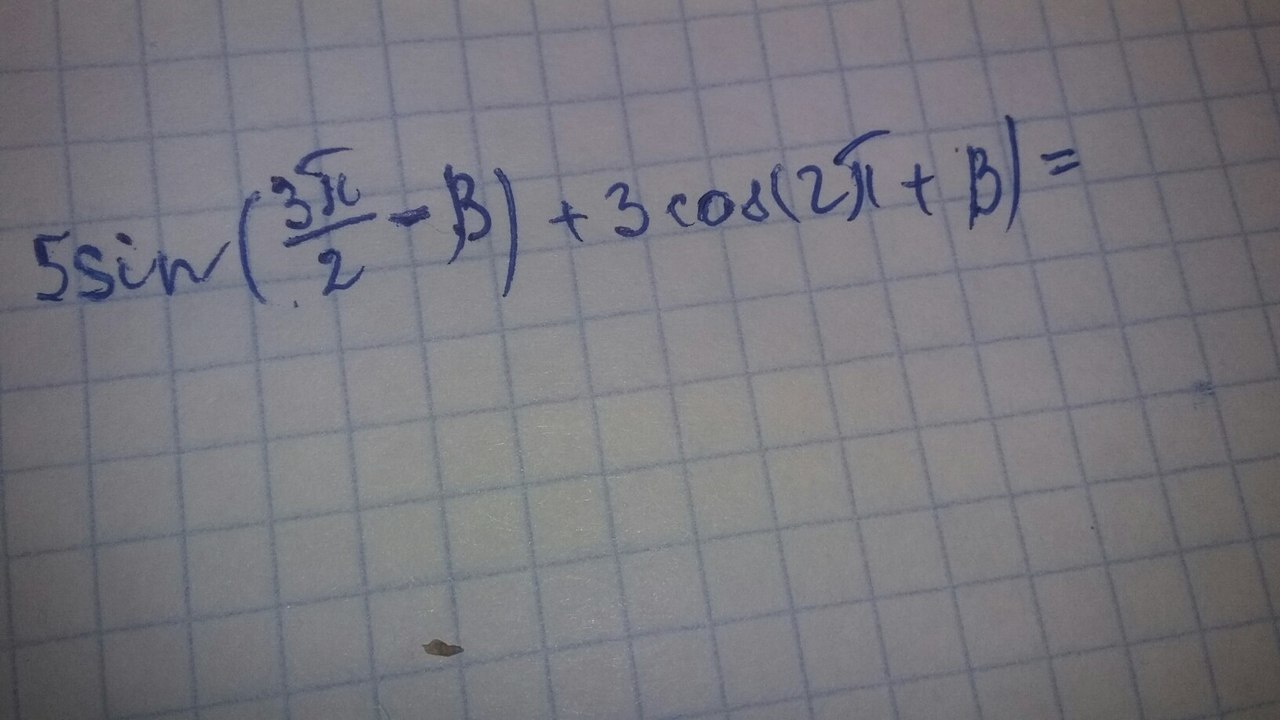 5sin(3π/2 - β) + 3cos(2π + β) =